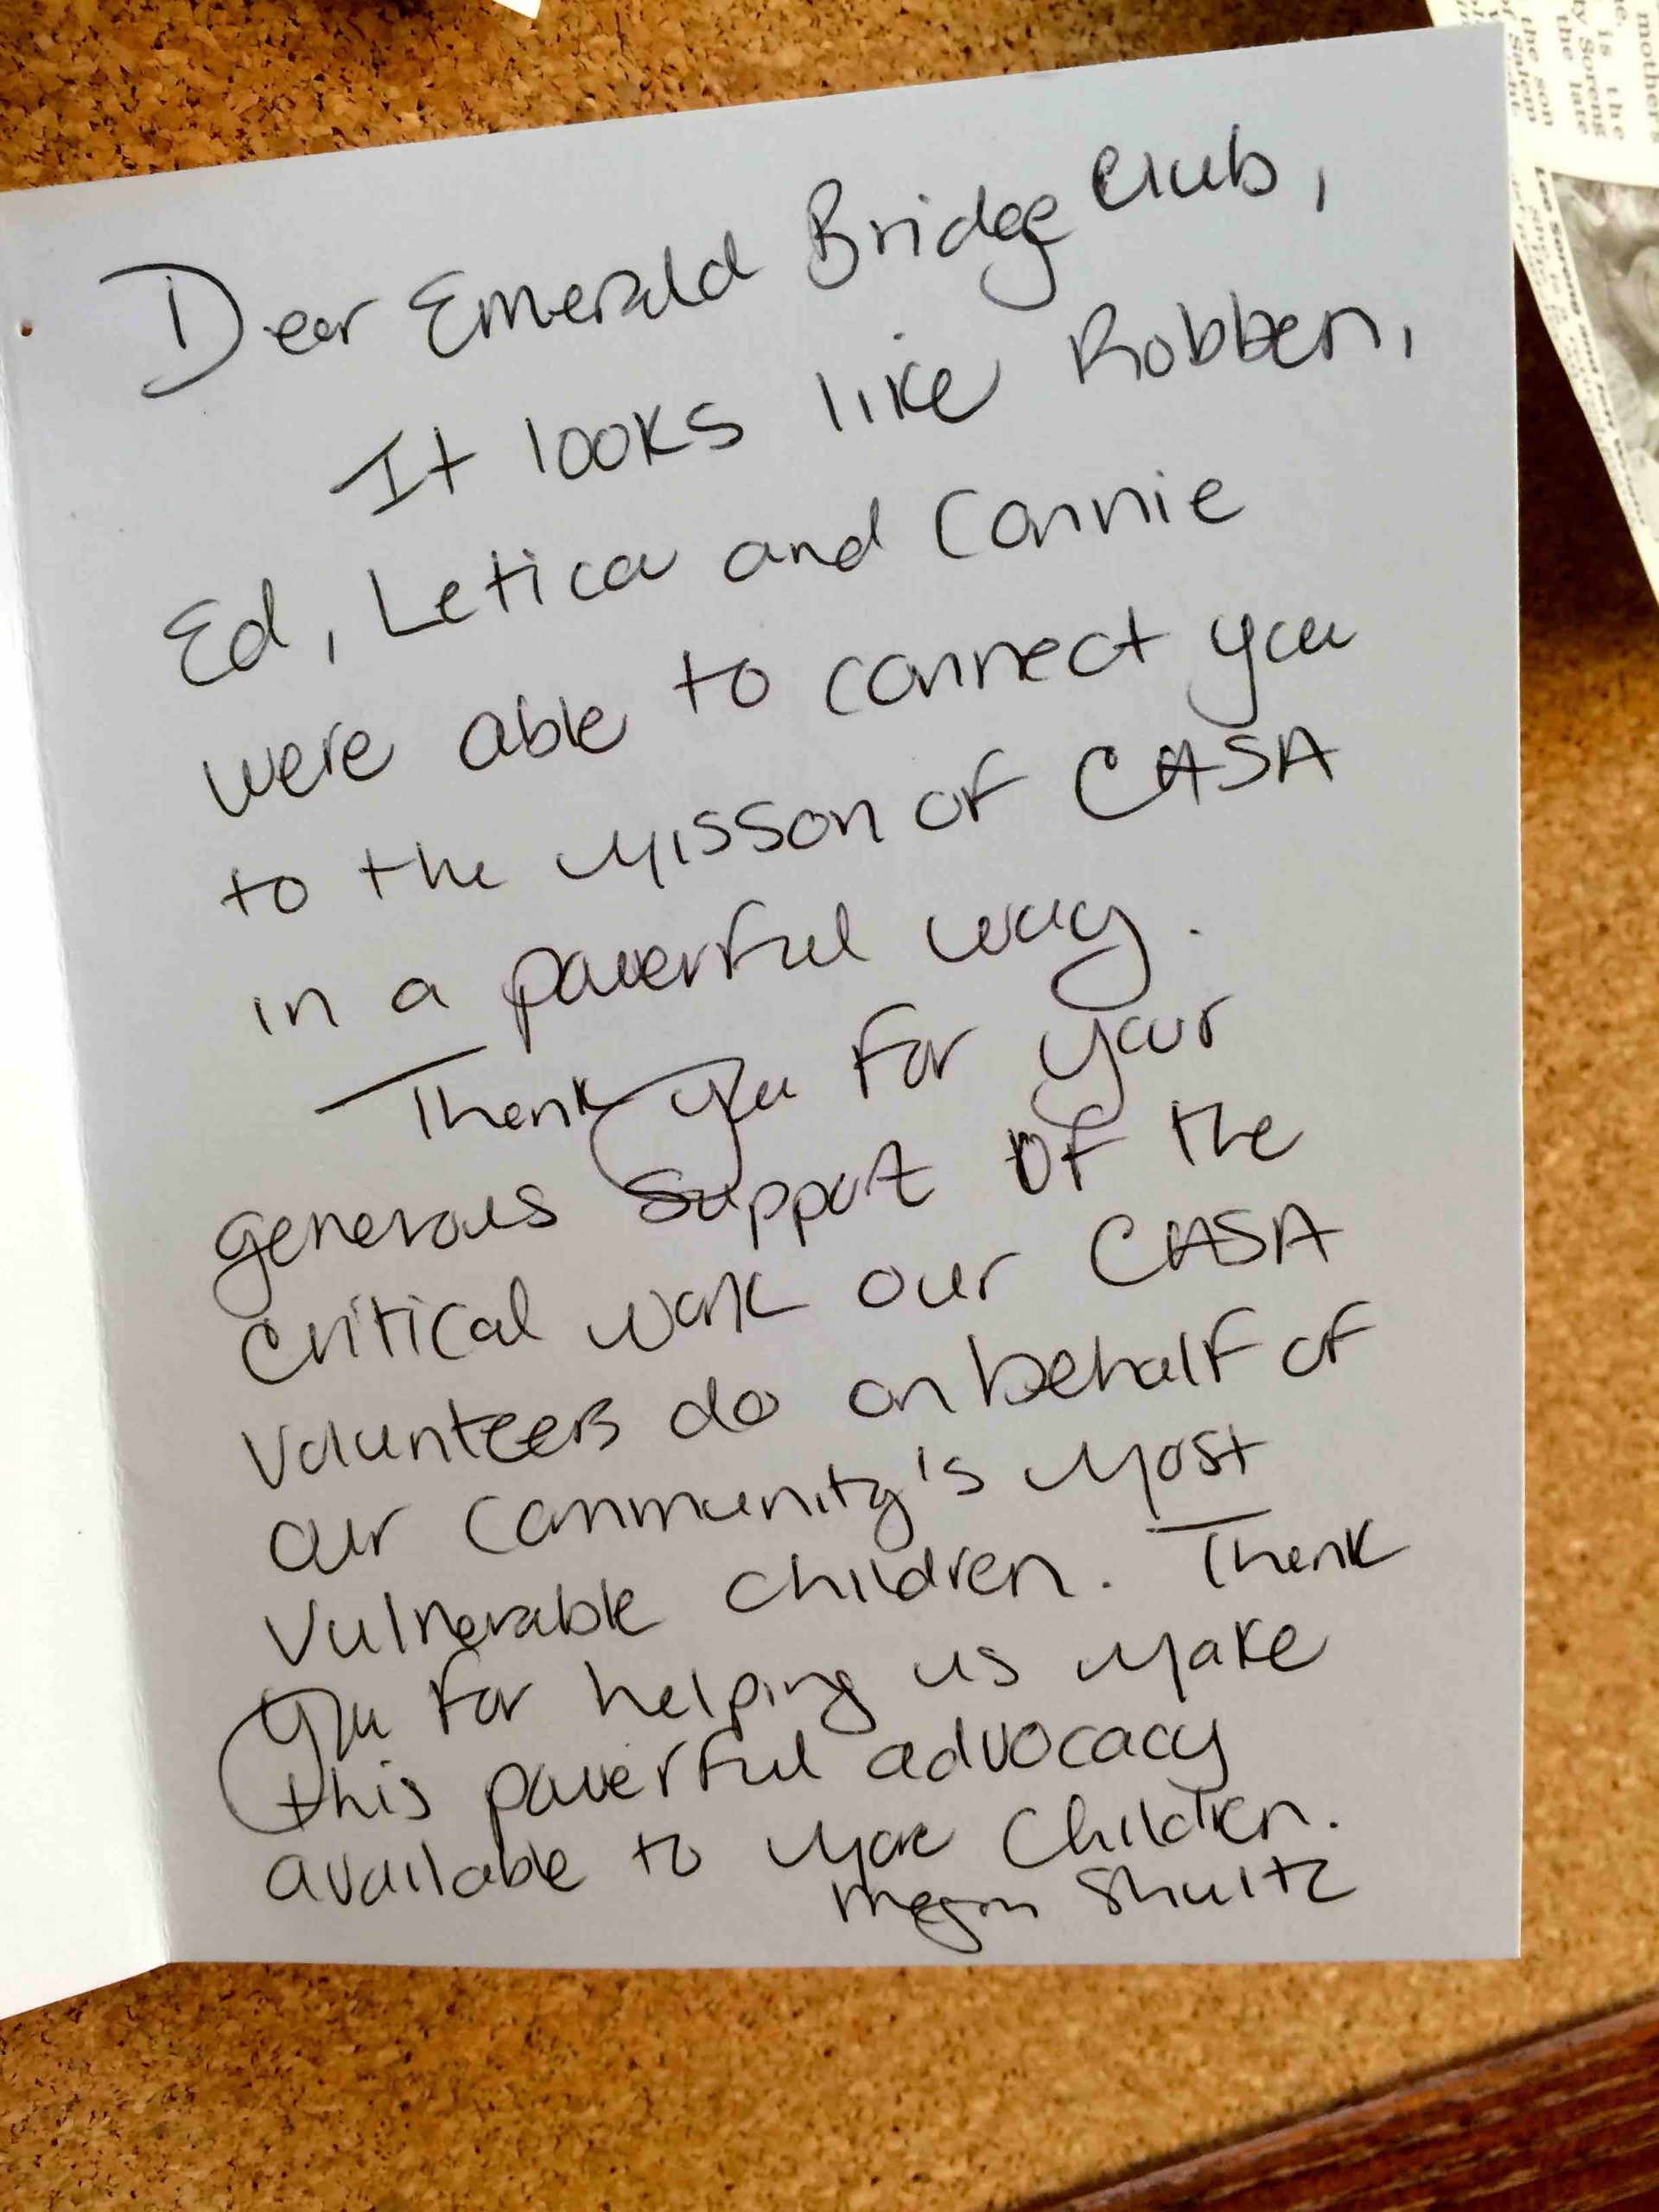 Dear Emerald Bridge Club,
It looks like Robben,
Ed, Letica and Connie
were able to connect you
to the Misson of CASA
in a powerful way.
Thank you for your
generous support of the
critical work our CASA
volunteers do on behalf of
our community's most
vulnerable children. Thank
you for helping us make
this powerful advocacy
available to more children.
Megan Shultz
mother
is the
Soreng
the late
the son
Salem